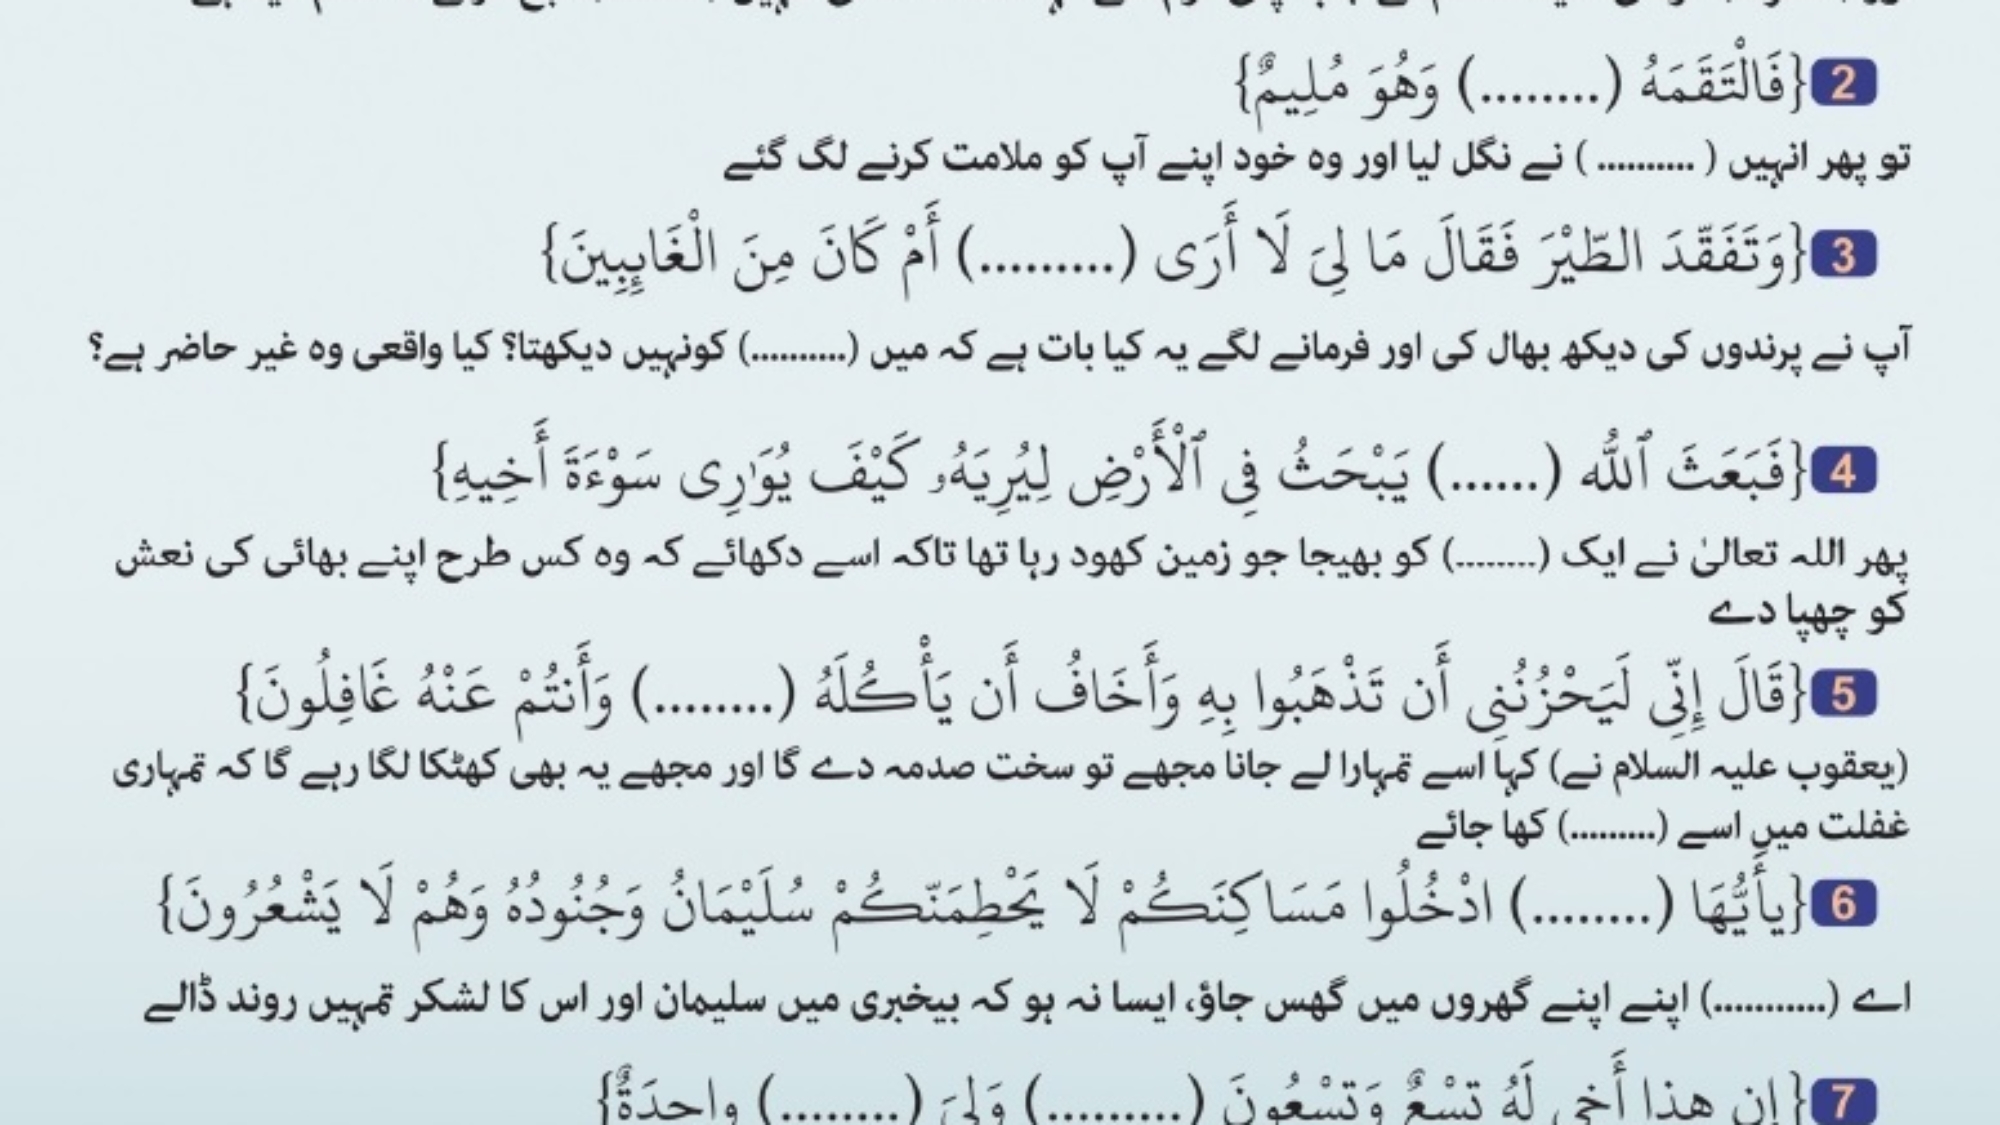 2 {فَالْتَقَمَهُ (........) وَهُوَ مُلِيمٌ}
تو پھر انہیں ( .......... ) نے نگل لیا اور وہ خود اپنے آپ کو ملامت کرنے لگ گئے
3 {وَتَفَقَّدَ الطَّيْرَ فَقَالَ مَا لِيَ لَا أَرَى (.........) أَمْ كَانَ مِنَ الْغَايِبِينَ}
آپ نے پرندوں کی دیکھ بھال کی اور فرمانے لگے یہ کیا بات ہے کہ میں (..........) کونہیں دیکھتا؟ کیا واقعی وہ غیر حاضر ہے؟
4 {فَبَعَثَ ٱللَّه (......) يَبْحَثُ فِي ٱلْأَرْضِ لِيُرِيَهُۥ كَيْفَ يُوَٰرِى سَوْءَةَ أَخِيهِ}
پھر اللہ تعالیٰ نے ایک (........) کو بھیجا جو زمین کھود رہا تھا تاکہ اسے دکھائے کہ وہ کس طرح اپنے بھائی کی نعش
کو چھپا دے
5 {قَالَ إِنِّي لَيَحْزُنُنِي أَن تَذْهَبُوا بِهِ وَأَخَافُ أَن يَأْكُلَهُ (........) وَأَنتُمْ عَنْهُ غَافِلُونَ}
(یعقوب علیہ السلام نے) کہا اسے تمہارا لے جانا مجھے تو سخت صدمہ دے گا اور مجھے یہ بھی کھٹکا لگا رہے گا کہ تمہاری
غفلت میں اسے (.........) کھا جائے
6 {يأَيُّهَا (........) ادْخُلُوا مَسَاكِنَكُمْ لَا يَحْطِمَنَّكُمْ سُلَيْمَانُ وَجُنُودُهُ وَهُمْ لَا يَشْعُرُونَ}
اے (...........) اپنے اپنے گھروں میں گھس جاؤ، ایسا نہ ہو کہ بیخبری میں سلیمان اور اس کا لشکر تمہیں روند ڈالے
7 {إن هذا أَخي لَهُ تِسْعٌ وَتِسْعُونَ (.........) وَلِيَ (........) واحِدَةٌ}